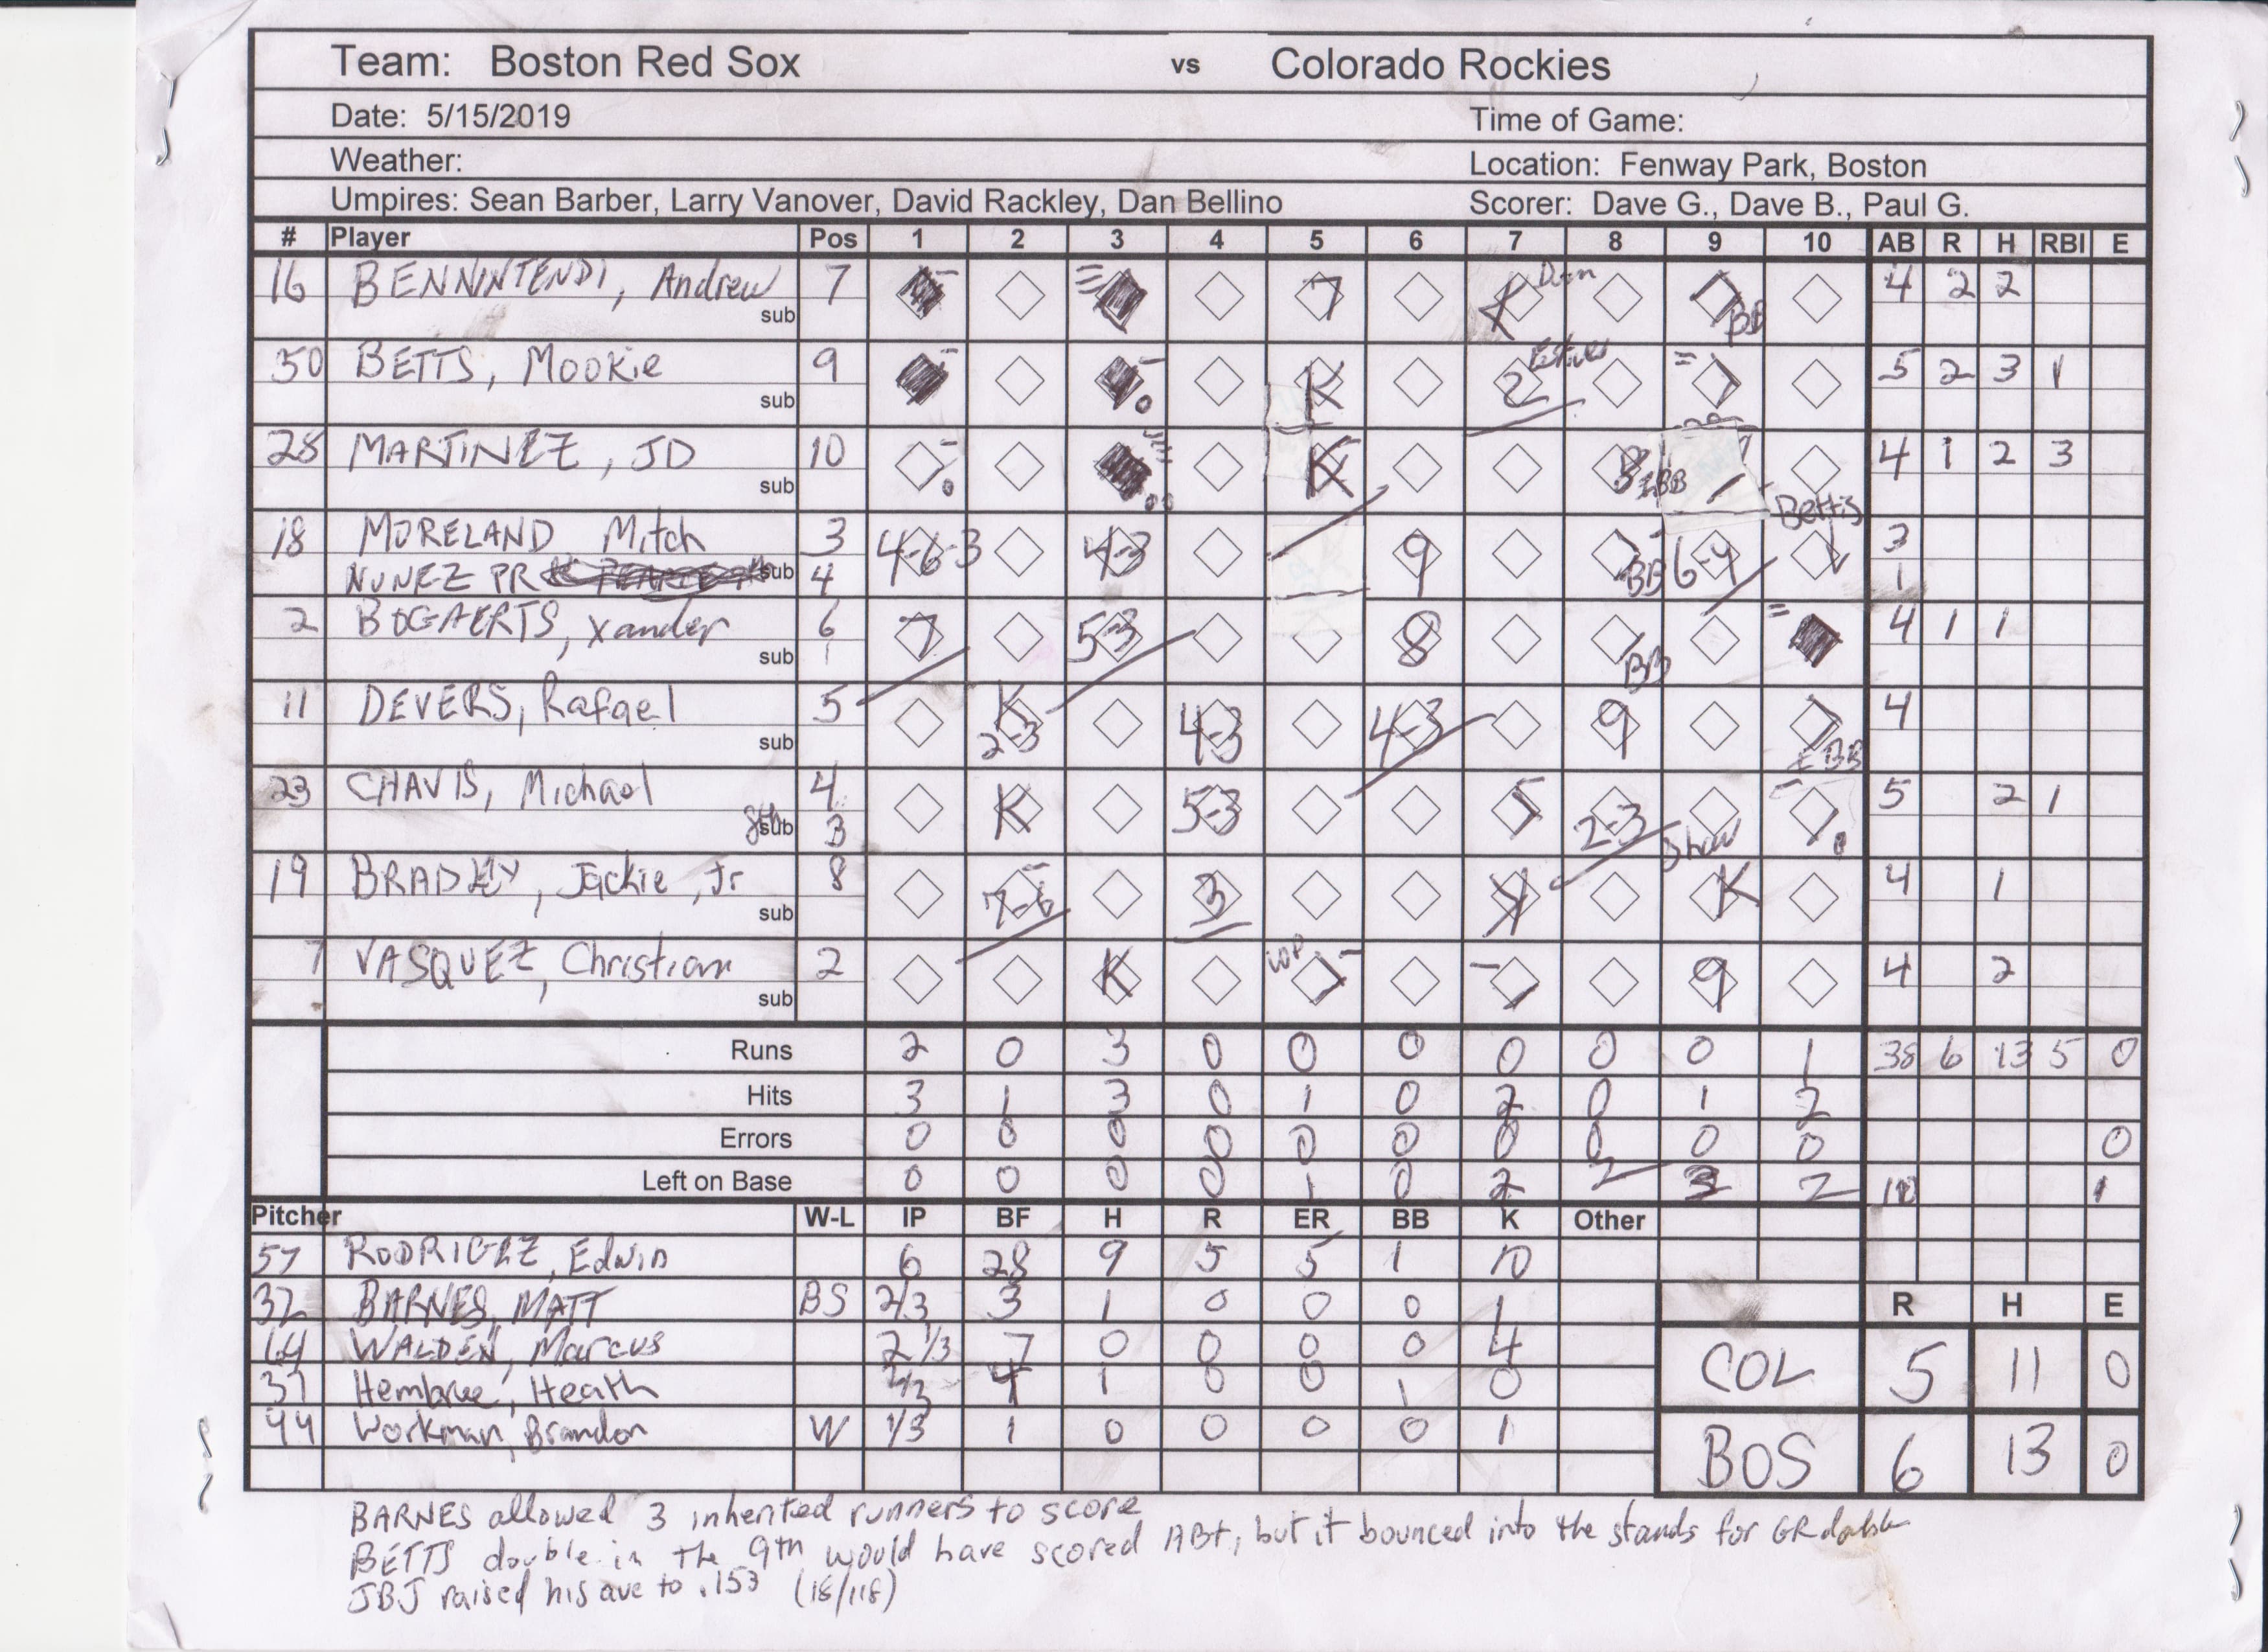 Team: Boston Red Sox vs Colorado Rockies
Date: 5/15/2019 Time of Game:
Weather: Location: Fenway Park, Boston
Umpires: Sean Barber, Larry Vanover, David Rackley, Dan Bellino Scorer: Dave G., Dave B., Paul G.
# Player Pos 1 2 3 4 5 6 7 8 9 10 AB R H RBI E
16 BENNINTENDI, Andrew 7 7 K BB 4 2 2
sub
50 BETTS, Mookie 9 K 2 5 2 3 1
sub
28 MARTINEZ, JD 10 K IBB 4 1 2 3
sub Bettis
18 MORELAND Mitch 3 4-6-3 4-3 9 BB 6-4 3
NUNEZ PR sub 4 1
2 BOGAERTS, Xander 6 7 5-3 8 BB 4 1 1
sub
11 DEVERS, Rafael 5 K 2-3 4-3 4-3 9 IBB 4
sub
23 CHAVIS, Michael 4 K 5-3 2-3 5 2 1
8th sub 3 Shaw
19 BRADLEY, Jackie, Jr 8 7-6 3 K K 4 1
sub
7 VASQUEZ, Christian 2 K WP 9 4 2
sub
Runs 2 0 3 0 0 0 0 0 0 1 38 6 13 5 0
Hits 3 1 3 0 1 0 2 0 1 2
Errors 0 0 0 0 0 0 0 0 0 0 0
Left on Base 0 0 0 0 1 0 2 2 3 2
Pitcher W-L IP BF H R ER BB K Other
57 RODRIGEZ, Edwin 6 28 9 5 5 1 10
32 BARNES, MATT BS 2/3 3 1 0 0 0 1
R H E
64 WALDEN, Marcus 2 1/3 7 0 0 0 0 4
COL 5 11 0
37 Hembree, Heath 2/3 4 1 0 0 1 0
44 Workman, Brandon W 1/3 1 0 0 0 0 1
BOS 6 13 0
BARNES allowed 3 inherited runners to score
BETTS double in the 9th would have scored AB+, but it bounced into the stands for GR double
JBJ raised his ave to .153 (18/118)